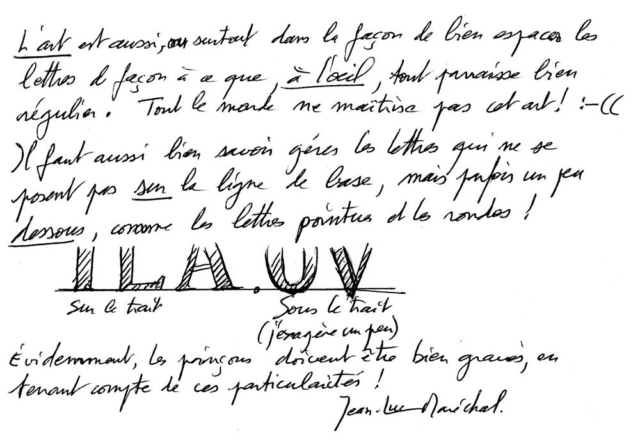 L'art est aussi, ou surtout dans la façon de bien espacer les
lettres de façon à ce que, à l'oeil, tout paraisse bien
régulier. Tout le monde ne maîtrise pas cet art! :-((
Il faut aussi bien savoir gérer les lettres qui ne se
posent pas sur la ligne de base, mais parfois un peu
dessous, comme les lettres pointues et les rondes!
ILA.UV
Sur le trait Sous le trait
(j'exagère un peu)
Évidemment, les poinçons doivent être bien gravés, en
tenant compte de ces particularités!
Jean-Luc Maréchal.